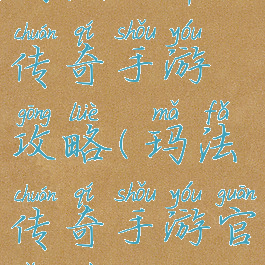 chuán qí shǒu yóu
传奇手游
gōng lüè mǎ fǎ
攻略(玛法
chuán qí shǒu yóu guān
传奇手游官